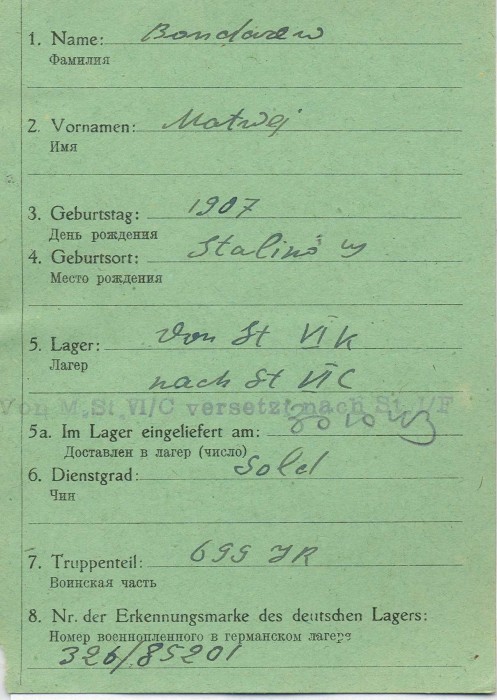 1. Name: Bondarew
Фамилия
2. Vornamen: Matwej
Имя
3. Geburtstag: 1907
День рождения
4. Geburtsort: Stalino
Место рождения
5. Lager: Von St VI K
Лагер nach St VI C
Von M. St. VI/C versetzt nach St. I/F
5a. Im Lager eingeliefert am:
Доставлен в лагер (число)
6. Dienstgrad: Sold
Чин
7. Truppenteil: 699 JR
Воинская часть
8. Nr. der Erkennungsmarke des deutschen Lagers:
Номер военнопленного в германском лагере
326/85201